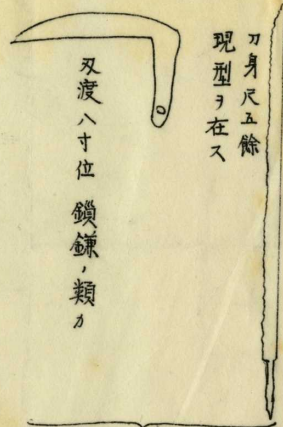 刀身尺五餘
現型ヲ在ス
刄渡八寸位 鎖鎌ノ類カ